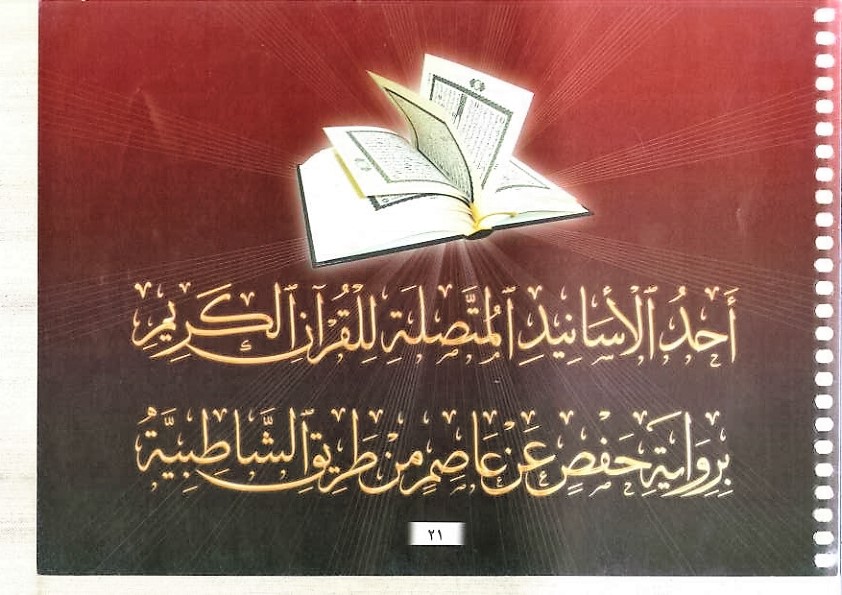 أَحَدُ ٱلْأَسَانِيدِ ٱلْمُتَّصِلَةِ لِلْقُرْآنِ ٱلْكَرِيمِ
بِرِوَايَةِ حَفْصٍ عَنْ عَاصِمٍ مِنْ طَرِيقِ ٱلشَّاطِبِيَّةِ
٢١